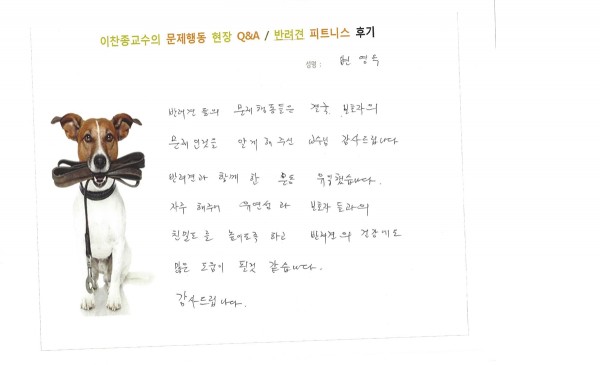 이찬종교수의 문제행동 현장 Q&A / 반려견 피트니스 후기
성명 : 변 영 숙
반려견 들의 문제행동들은 견국 보호자의
문제 였것을 알게 해 주신 교수님 감사드립니다
반려견과 함께 한 운동 유익했습니다.
자주 해주어 유연성과 보호자 들과의
친밀도를 높이도록 하고 반려견의 건강에도
많은 도움이 될것 같습니다.
감사드립니다.